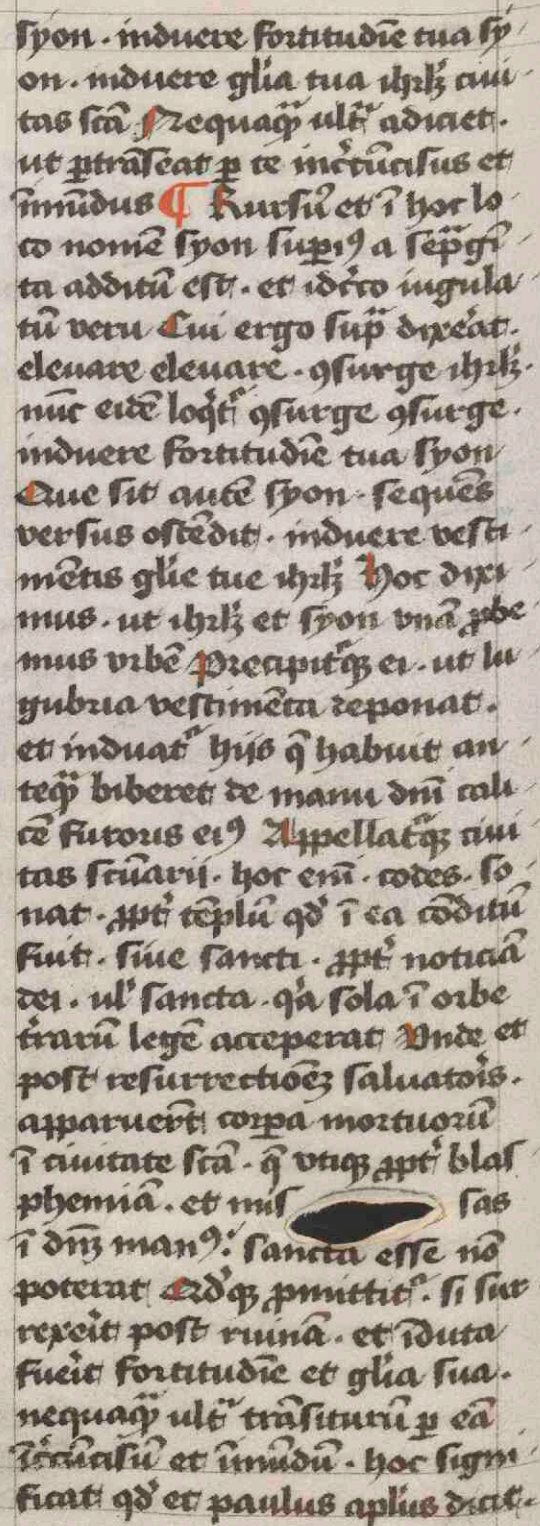 syon · induere fortitudīe tua sy
on · induere gl̄ia tua ihrl̄ꝫ ciui
tas scā Nequaqᷓ ult̄ᵃ adiciet ·
ut ꝑtrāseat ꝑ te inc̄cūcisus et
īmūdus ¶ Rursuꝰ et ī hoc lo
co nomē syon suꝑiꝰ a sepᷓgī
ta additū est · et idc̄co iugula
tū veru Cui ergo supᷓ dixerat ·
eleuare eleuare · ꝯsurge ihrl̄ꝫ ·
nūc eidē loqͥtᷣ ꝯsurge ꝯsurge ·
induere fortitudīe tua syon
Que sit autē syon · sequēs
versus ostēdit · induere vesti
mētis gl̄ie tue ihrl̄ꝫ Hoc dixi
mus · ut ihrl̄ꝫ et syon vnā ꝓbe
mus vrbē Precipitᷣqꝫ ei · ut lu
gubria vestimēta reponat ·
et induatᷣ hijs q̄ habuit an
teqᷓ biberet de manu dn̄i cali
cē furoris eiꝰ Appellatᷣqꝫ ciui
tas scūarij · hoc enī · codes · so
nat · ꝓpt̄ tēplū qd̄ ī ea cōditū
fuit · siue sancti · ꝓpt̄ noticiā
dei · ul̄ sancta · qᷓa sola ī orbe
t̄rarū legē acceperat Vnde et
post resurrectiōeꝫ saluatoͥs ·
apparuer̄t corꝑa mortuorū
ī ciuitate scā · q̄ vtiqꝫ ꝓpt̄ blas
phemiā · et mis sas
ī dn̄ꝫ manꝰ : sancta esse nō
poterat Qd̄qꝫ ꝓmittitᷣ · si sur
rexeīt post ruinā · et īduta
fueīt fortitudīe et gl̄ia sua ·
nequaqᷓ ult̄ᵃ trāsiturū ꝑ eā
īc̄cūcisū et īmūdū · hoc signi
ficat qd̄ et paulus apl̄us dicit ·